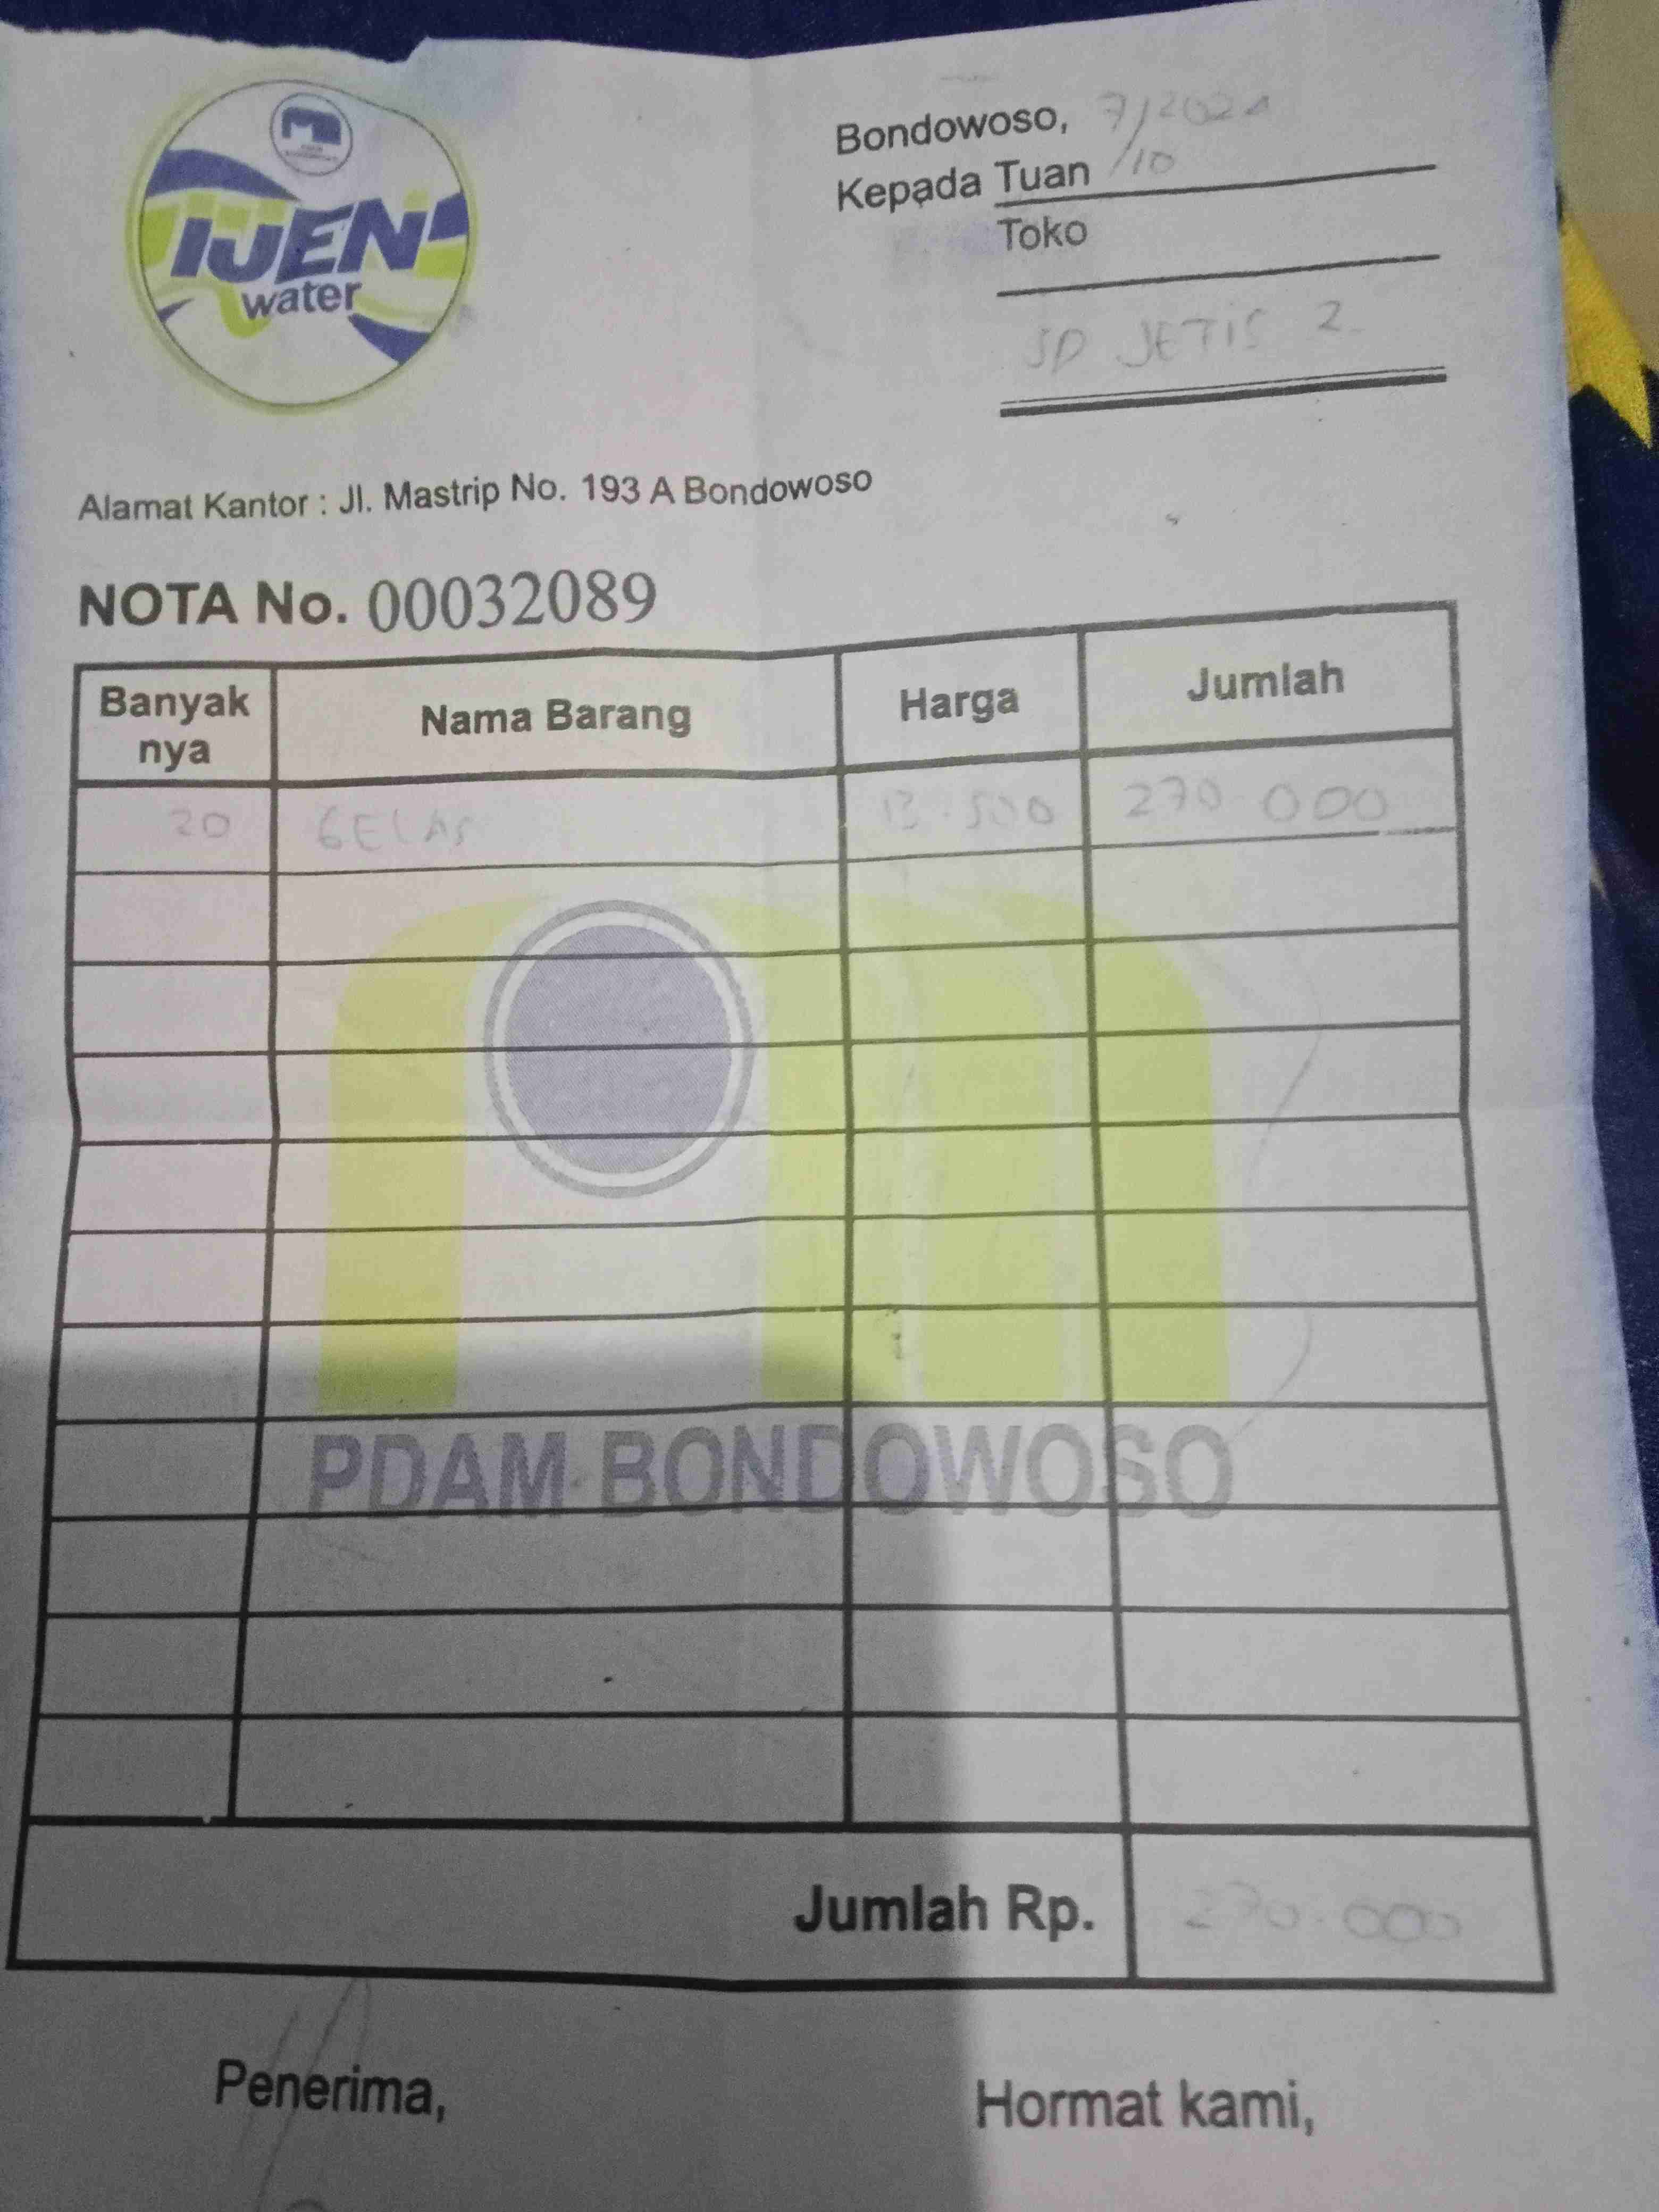 IJEN
water
Bondowoso, 7/10/2021
Kepada Tuan
Toko
SD JETIS 2
Alamat Kantor : Jl. Mastrip No. 193 A Bondowoso
NOTA No. 00032089
Banyak nya Nama Barang Harga Jumlah
20 GELAS 13.500 270.000
PDAM BONDOWOSO
Jumlah Rp. 270.000
Penerima, Hormat kami,